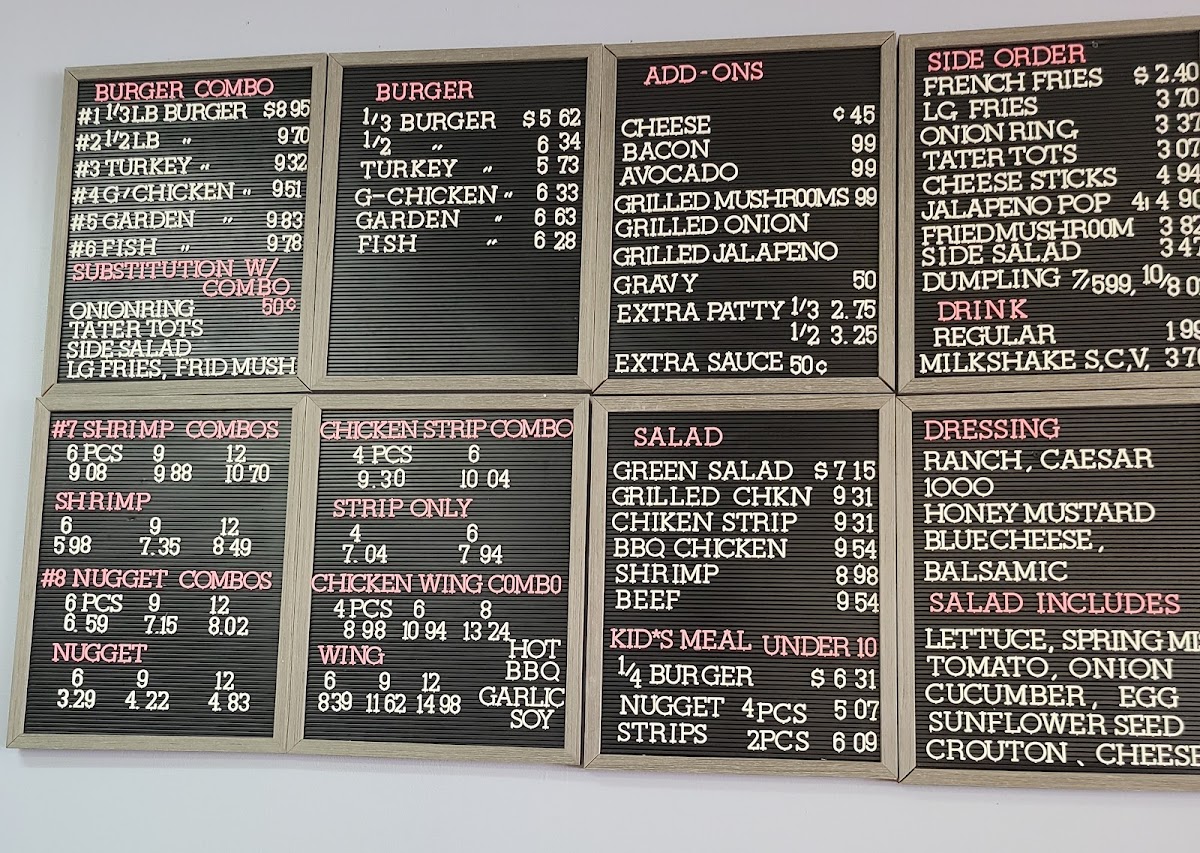 BURGER COMBO
#1 1/3 LB BURGER $8 95
#2 1/2 LB " 9 70
#3 TURKEY " 9 32
#4 G/CHICKEN " 9 51
#5 GARDEN " 9 83
#6 FISH " 9 78
SUBSTITUTION W/
COMBO
ONIONRING 50¢
TATER TOTS
SIDE SALAD
LG FRIES, FRID MUSH
BURGER
1/3 BURGER $5 62
1/2 " 6 34
TURKEY " 5 73
G-CHICKEN " 6 33
GARDEN " 6 63
FISH " 6 28
ADD-ONS
CHEESE ¢45
BACON 99
AVOCADO 99
GRILLED MUSHROOMS 99
GRILLED ONION
GRILLED JALAPENO
GRAVY 50
EXTRA PATTY 1/3 2.75
1/2 3.25
EXTRA SAUCE 50¢
SIDE ORDER
FRENCH FRIES $2.40
LG FRIES 3 70
ONION RING 3 37
TATER TOTS 3 07
CHEESE STICKS 4 94
JALAPENO POP 4, 4 90
FRIED MUSHROOM 3 82
SIDE SALAD 3 47
DUMPLING 7/599, 10/8 0
DRINK
REGULAR 1 99
MILKSHAKE S,C,V, 3 70
#7 SHRIMP COMBOS
6 PCS 9 12
9 08 9 88 10 70
SHRIMP
6 9 12
5 98 7.35 8 49
#8 NUGGET COMBOS
6 PCS 9 12
6.59 7.15 8.02
NUGGET
6 9 12
3.29 4.22 4 83
CHICKEN STRIP COMBO
4 PCS 6
9.30 10 04
STRIP ONLY
4 6
7.04 7 94
CHICKEN WING COMBO
4 PCS 6 8
8 98 10 94 13 24
WING
6 9 12
8 39 11 62 14 98
HOT
BBQ
GARLIC
SOY
SALAD
GREEN SALAD $7 15
GRILLED CHKN 9 31
CHIKEN STRIP 9 31
BBQ CHICKEN 9 54
SHRIMP 8 98
BEEF 9 54
KID*S MEAL UNDER 10
1/4 BURGER $6 31
NUGGET 4PCS 5 07
STRIPS 2PCS 6 09
DRESSING
RANCH, CAESAR
1000
HONEY MUSTARD
BLUECHEESE,
BALSAMIC
SALAD INCLUDES
LETTUCE, SPRING MI
TOMATO, ONION
CUCUMBER, EGG
SUNFLOWER SEED
CROUTON, CHEESE